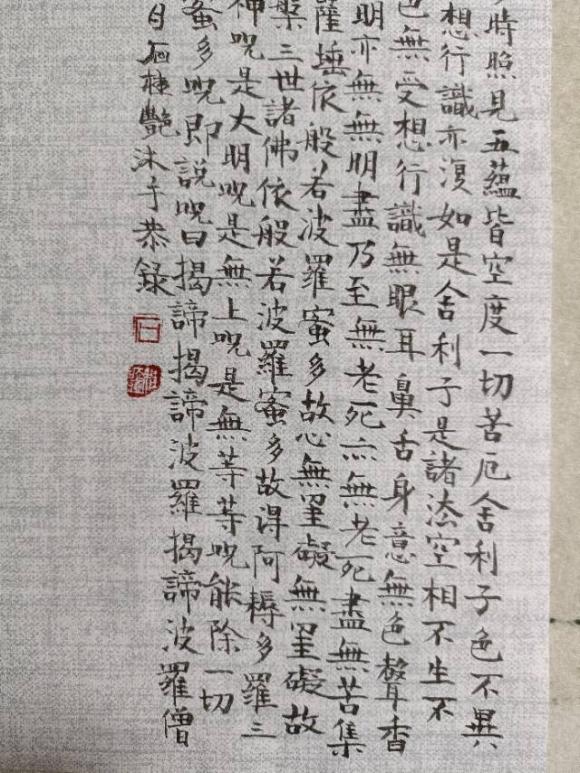 時照見五蘊皆空度一切苦厄舍利子色不異
想行識亦復如是舍利子是諸法空相不生不
色無受想行識無眼耳鼻舌身意無色聲香
明亦無無明盡乃至無老死亦無老死盡無苦集
薩埵依般若波羅蜜多故心無罣礙無罣礙故
槃三世諸佛依般若波羅蜜多故得阿耨多羅三
神呪是大明呪是無上呪是無等等呪能除一切
蜜多呪即說呪曰揭諦揭諦波羅揭諦波羅僧
日石艷沐手恭錄
石